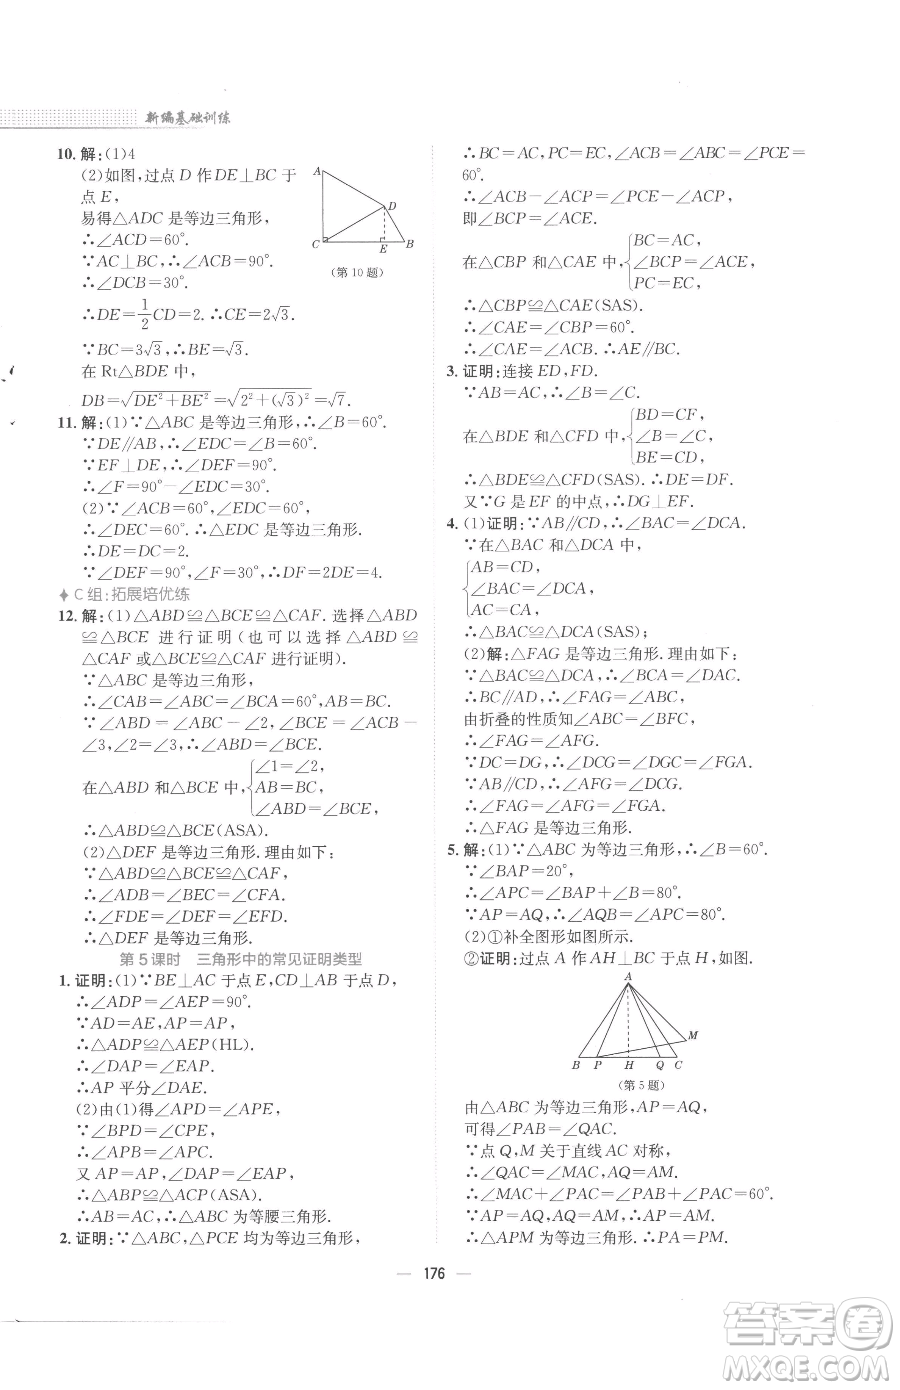 新编基础训练
10. 解:(1)4
(2)如图,过点 D 作 DE⊥BC 于
点 E,
易得△ADC 是等边三角形,
∴∠ACD=60°.
∵AC⊥BC,∴∠ACB=90°.
∴∠DCB=30°.
∴DE=1/2CD=2.∴CE=2√3.
∵BC=3√3,∴BE=√3.
在 Rt△BDE 中,
DB=√(DE²+BE²)=√(2²+(√3)²)=√7.
A
D
C
E
B
(第 10 题)
11. 解:(1)∵△ABC 是等边三角形,∴∠B=60°.
∵DE∥AB,∴∠EDC=∠B=60°.
∵EF⊥DE,∴∠DEF=90°.
∴∠F=90°-∠EDC=30°.
(2)∵∠ACB=60°,∠EDC=60°,
∴∠DEC=60°.∴△EDC 是等边三角形.
∴DE=DC=2.
∵∠DEF=90°,∠F=30°,∴DF=2DE=4.
C 组:拓展培优练
12. 解:(1)△ABD≌△BCE≌△CAF. 选择△ABD
≌△BCE 进行证明(也可以选择△ABD≌
△CAF 或△BCE≌△CAF 进行证明).
∵△ABC 是等边三角形,
∴∠CAB=∠ABC=∠BCA=60°,AB=BC.
∵∠ABD=∠ABC-∠2,∠BCE=∠ACB-
∠3,∠2=∠3,∴∠ABD=∠BCE.
在△ABD 和△BCE 中,
∠1=∠2,
AB=BC,
∠ABD=∠BCE,
∴△ABD≌△BCE(ASA).
(2)△DEF 是等边三角形.理由如下:
∵△ABD≌△BCE≌△CAF,
∴∠ADB=∠BEC=∠CFA.
∴∠FDE=∠DEF=∠EFD.
∴△DEF 是等边三角形.
第 5 课时 三角形中的常见证明类型
1. 证明:(1)∵BE⊥AC 于点 E,CD⊥AB 于点 D,
∴∠ADP=∠AEP=90°.
∵AD=AE,AP=AP,
∴△ADP≌△AEP(HL).
∴∠DAP=∠EAP.
∴AP 平分∠DAE.
(2)由(1)得∠APD=∠APE,
∵∠BPD=∠CPE,
∴∠APB=∠APC.
又 AP=AP,∠DAP=∠EAP,
∴△ABP≌△ACP(ASA).
∴AB=AC,∴△ABC 为等腰三角形.
2. 证明:∵△ABC,△PCE 均为等边三角形,
∴BC=AC,PC=EC,∠ACB=∠ABC=∠PCE=
60°.
∴∠ACB-∠ACP=∠PCE-∠ACP,
即∠BCP=∠ACE.
在△CBP 和△CAE 中,
BC=AC,
∠BCP=∠ACE,
PC=EC,
∴△CBP≌△CAE(SAS).
∴∠CAE=∠CBP=60°.
∴∠CAE=∠ACB.∴AE∥BC.
3. 证明:连接 ED,FD.
∵AB=AC,∴∠B=∠C.
在△BDE 和△CFD 中,
BD=CF,
∠B=∠C,
BE=CD,
∴△BDE≌△CFD(SAS).∴DE=DF.
又∵G 是 EF 的中点,∴DG⊥EF.
4. (1)证明:∵AB∥CD,∴∠BAC=∠DCA.
∵在△BAC 和△DCA 中,
AB=CD,
∠BAC=∠DCA,
AC=CA,
∴△BAC≌△DCA(SAS);
(2)解:△FAG 是等边三角形.理由如下:
∵△BAC≌△DCA,∴∠BCA=∠DAC.
∴BC∥AD,∴∠FAG=∠AFC,
由折叠的性质知∠ABC=∠BFC,
∴∠FAG=∠AFG.
∵DC=DG,∴∠DCG=∠DGC=∠FGA.
∵AB∥CD,∴∠AFG=∠DCG.
∴∠FAG=∠AFG=∠FGA.
∴△FAG 是等边三角形.
5. 解:(1)∵△ABC 为等边三角形,∴∠B=60°.
∵∠BAP=20°,
∴∠APC=∠BAP+∠B=80°.
∵AP=AQ,∴∠AQB=∠APC=80°.
(2)①补全图形如图所示.
②证明:过点 A 作 AH⊥BC 于点 H.
A
M
B
P
H
Q
C
(第 5 题)
由△ABC 为等边三角形,AP=AQ,
可得∠PAB=∠QAC.
∵点 Q,M 关于直线 AC 对称,
∴∠QAC=∠MAC,AQ=AM.
∴∠MAC+∠PAC=∠PAB+∠PAC=60°.
∵AP=AQ,∴AP=AM.
∴△APM 为等边三角形.∴PA=PM.
— 176 —
答案圈
MXQE.COM